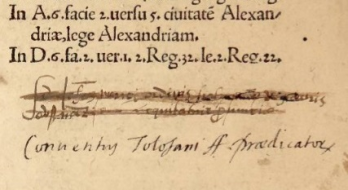 In A.6.facie 2.uersu 5. ciuitatē Alexan-
driæ, lege Alexandriam.
In D.6.fa.2. uer.1. 2.Reg.32. le.2.Reg.22.
Conuentus Tolosani ff. prædicator